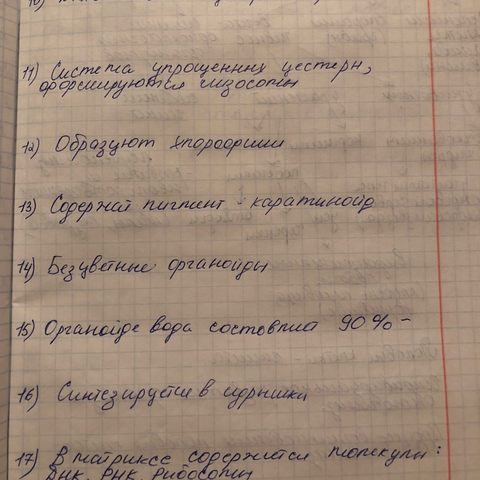 11) Система упрощенних цестерн,
оформируются лизосомы
12) Образуют хлорофиши
13) Содержат пигмент - каратиноид
14) Безцветные органойды
15) Органойде вода состовлиет 90% -
16) Синтезируется в ядрышки
17) В матриксе содержатся молекулы:
ДНК, РНК, рибосомы